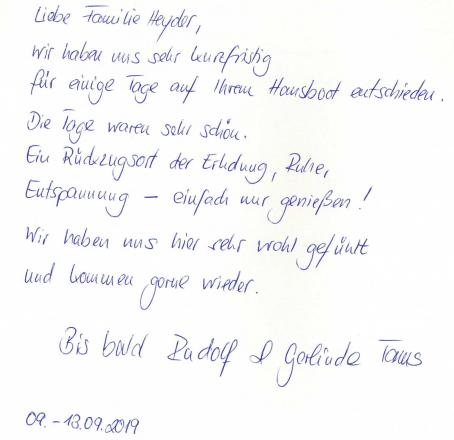 Liebe Familie Heyder,
wir haben uns sehr kurzfristig
für einige Tage auf Ihrem Hausboot entschieden.
Die Tage waren sehr schön.
Ein Rückzugsort der Erholung, Ruhe,
Entspannung – einfach nur genießen!
Wir haben uns hier sehr wohl gefühlt
und kommen gerne wieder.
Bis bald Rudolf & Gerlinde
09. – 13.09.2019